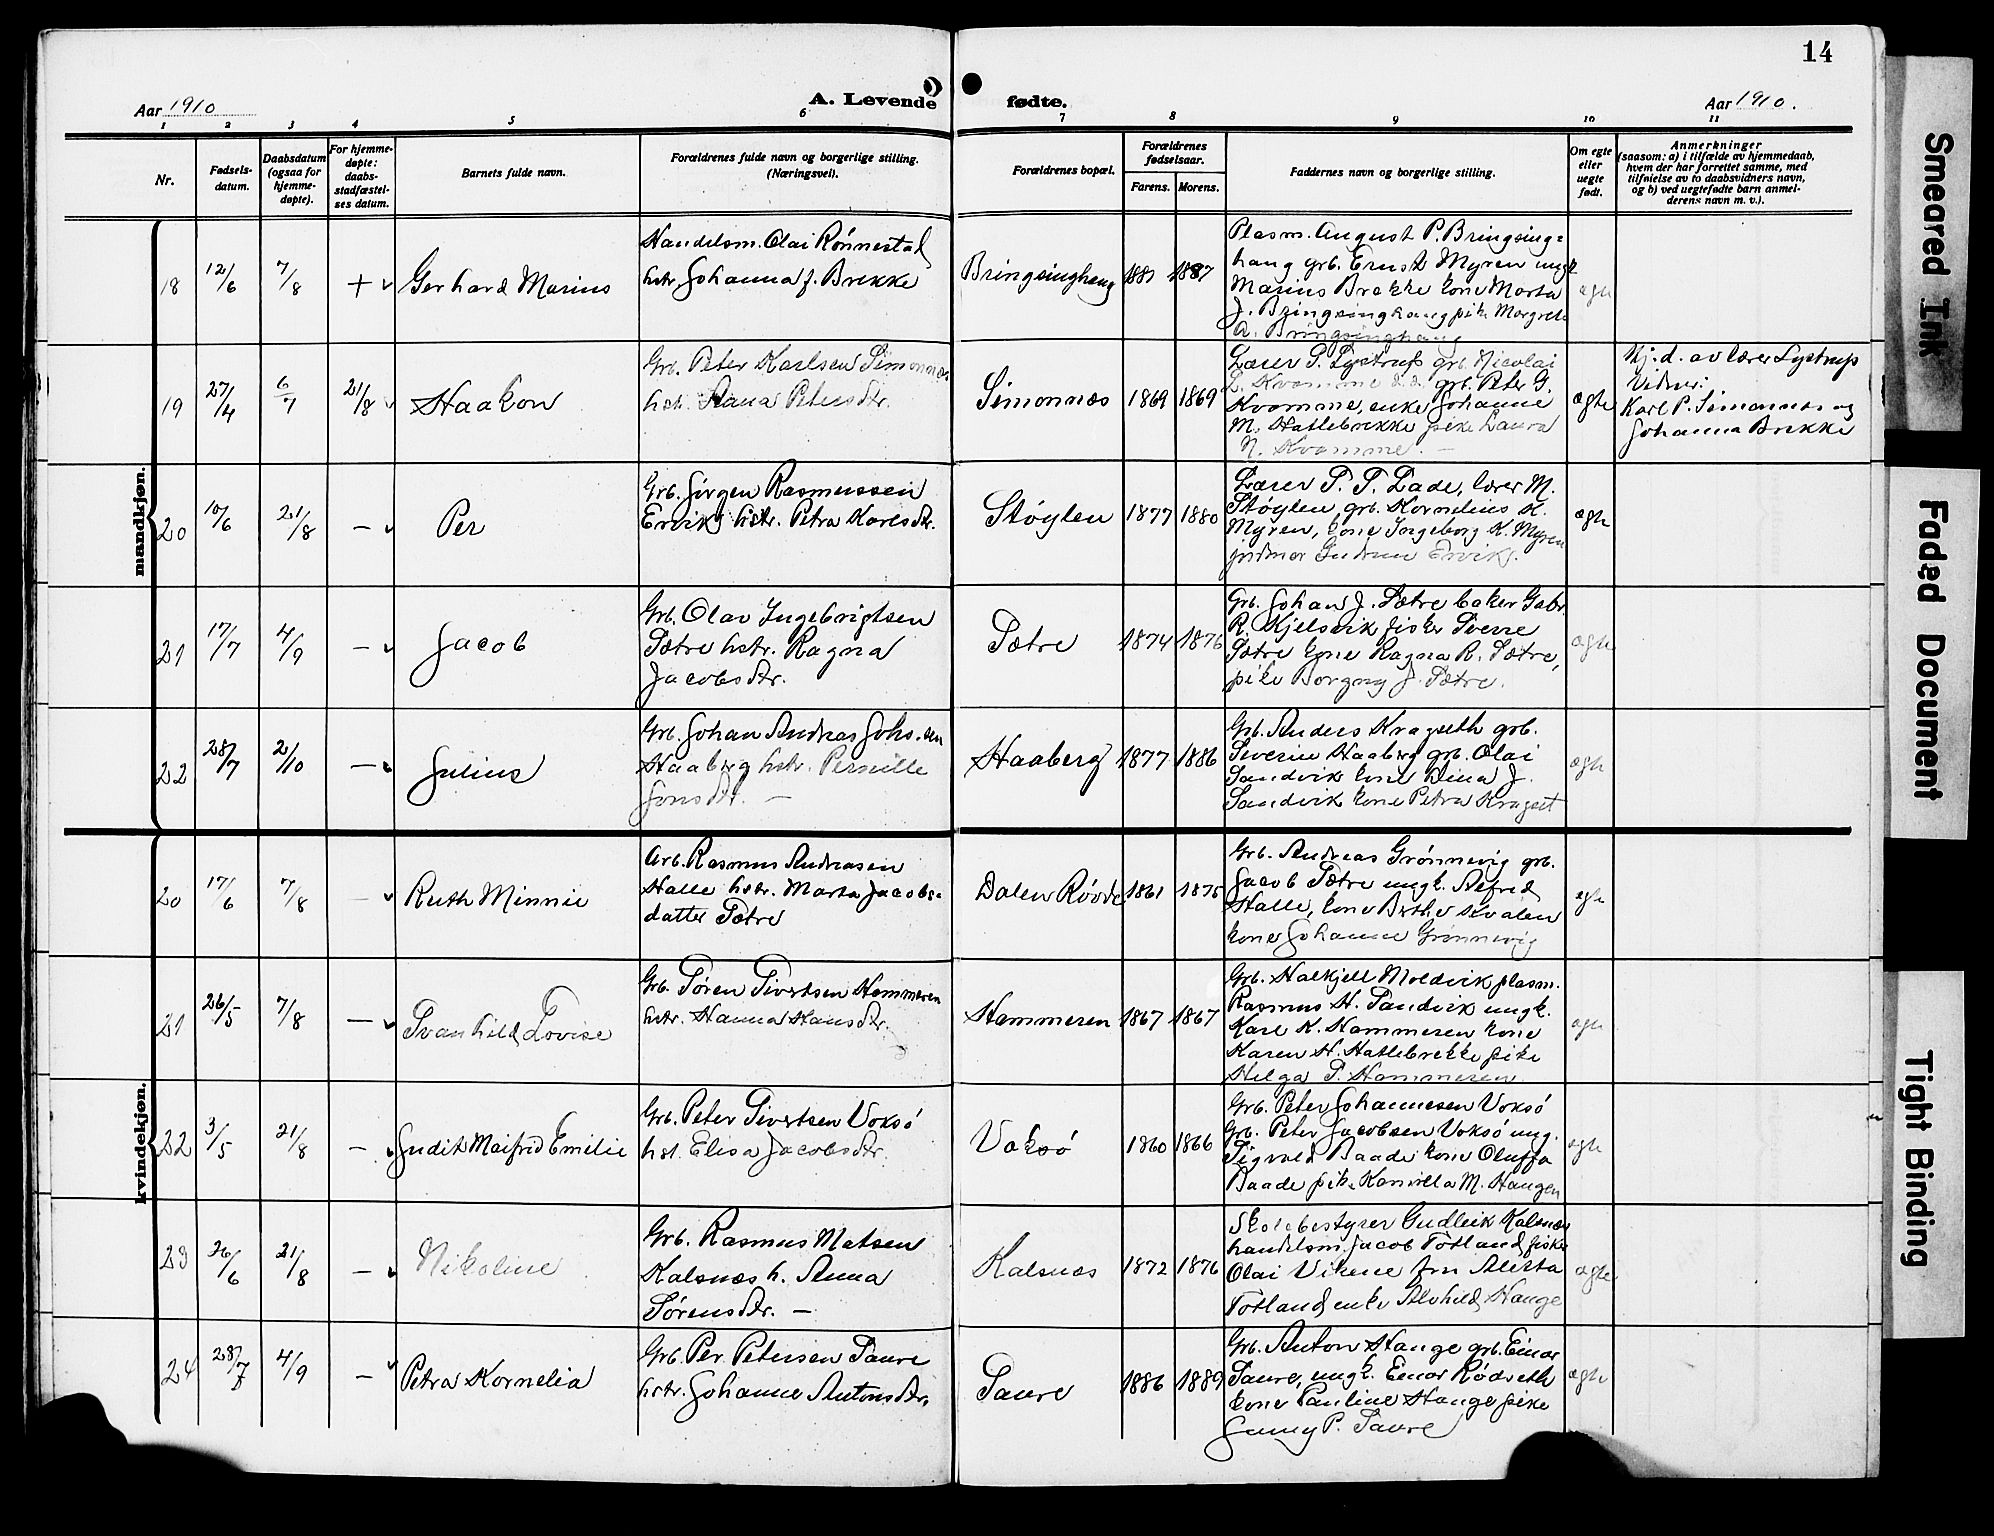 14
Aar 1910
A. Levende fødte.
Aar 1910.
1 2 3 4 5 6 7 8 9 10 11
Nr.
Fødsels-
datum.
Daabsdatum
(ogsaa for
hjemme-
døpte).
For hjemme-
døpte:
daabs-
stadfæstel-
ses datum.
Barnets fulde navn.
Forældrenes fulde navn og borgerlige stilling.
(Næringsvei).
Forældrenes bopæl.
Forældrenes
fødselsaar.
Farens. Morens.
Faddernes navn og borgerlige stilling.
Om egte
eller
uegte
født.
Anmerkninger
(saasom: a) i tilfælde av hjemmedaab,
hvem der har forrettet samme, med
tilføielse av to daabsvidners navn,
og b) ved uegtefødte barn anmel-
derens navn m. v.).
mandkjøn.
18 12/6 7/8 + Gerhard Marius
Handelsm. Olai Rönnestad
hstr. Johanna f. Brekke
Bringsinghaug 1887
Plasm. August P. Bringsing=
haug grb. Ernst Myren ungk
Marius Brekke kone Marta
J. Bringsinghaug pike Margrete
A. Bringsinghaug
ægte
19 27/4 6/7 21/8 Haakon
Grb. Peter Karlsen Simonnæs
hstr. Petersdtr.
Simonnæs 1869 1869
Lærer P. Lystrup grb. Nicolai
L. Kvamme d.d. grb. Peter G.
Kvamme, enke Johanne
M. Hatlebrekke pike Laura
N. Kvamme. —
ægte
Hj. d. av lærer Lystrup
Vidner:
Karl P. Simonnæs og
Johanna Brekke
20 10/6 21/8 — Per
Grb. Jörgen Rasmussen
Ervik hstr. Petra Karlsdtr.
Støylen 1877 1880
Lærer P. P. Lade, lærer M.
Støylen, grb. Kornelius K.
Myren, kone Ingeborg K. Myren
jordmor Gudrun Ervik.
ægte
21 17/7 4/9 — Jacob
Grb. Olav Ingebrigtsen
Sætre hstr. Ragna
Jacobsdtr.
Sætre 1874 1876
Grb. Johan J. Sætre baker Gabr.
R. Kjelsvik fisker Sverre
Sætre kone Ragna R. Sætre,
pike Borgny J. Sætre.
ægte
22 28/7 2/10 — Julius
Grb. Johan Andreas Johs.sen
Haaberg hstr. Pernille
Jonsdtr. —
Haaberg 1877 1886
Grb. Anders Kragseth grb.
Severin Haaberg grb. Olai
Sandvik kone Dina J.
Sandvik kone Petra Kragset
ægte
kvindekjøn.
20 17/6 7/8 — Ruth Minnie
Arb. Rasmus Andreasen
Halle hstr. Marta Jacobs=
datter Sætre
Dalen Røvde 1861 1875
Grb. Andreas Grönnevig grb.
Jacob Sætre ungk. Alfred
Halle, kone Berthe Kvalen
kone Johanne Grönnevig
ægte
21 26/5 7/8 — Svanhild Lovise
Grb. Sören Sivertsen Hammeren
hstr. Hanna Hansdtr.
Hammeren 1867 1867
Grb. Halkjell Moldvik plasm.
Rasmus H. Sandvik ungk.
Karl K. Hammeren kone
Karen H. Hatlebrekke pike
Helga S. Hammeren
ægte
22 3/5 21/8 — Judit Maifrid Emilie
Grb. Peter Sivertsen Voksö
hst. Elisa Jacobsdtr.
Voksö 1860 1866
Grb. Peter Johannesen Voksö
Grb. Peter Jacobsen Voksö ung.
Sigvald Baade kone Oluffa
Baade pike M. Haugen
ægte
23 26/6 21/8 — Nikoline
Grb. Rasmus Matsen
Kalsnæs h. Anna
Sörensdtr. —
Kalsnæs 1872 1876
Skolebestyrer Gudleik Kalsnæs
handelsm. Jacob Totland fisker
Olai Vikene fru Aletta
Totland enke Alvhild Hauge
ægte
24 28/7 4/9 — Petra Kornelia
Grb. Per Petersen Saure
hstr. Johanne Antonsdtr.
Saure 1886 1889
Grb. Anton Hauge grb. Einar
Saure, ungk. Einar Rødseth
kone Pauline Hauge pike
Jenny P. Saure
ægte
Smeared Ink
Faded Document
Tight Binding